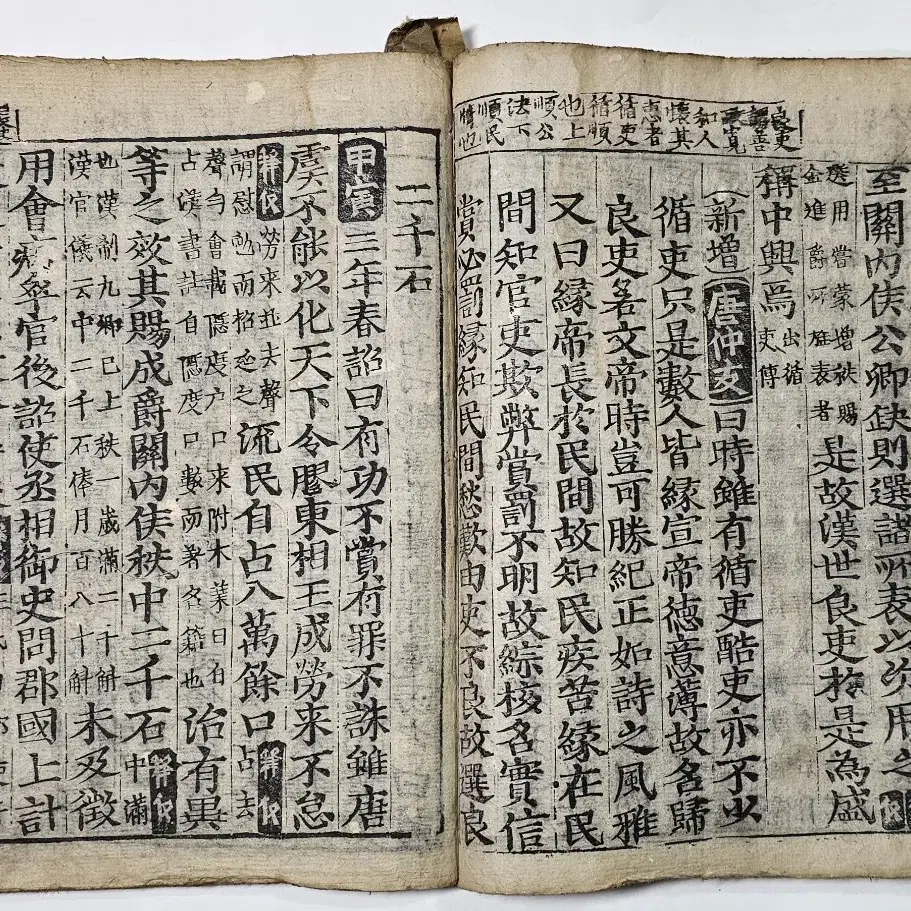 良吏
謂善
政寬
和人
懷其
惠者
循吏
循順
也上
順公
法下
順民
情也
至關内侯公卿缺則選諸所表以次用之
選用嘗蒙增秩賜
金進爵所旌表者
是故漢世良吏於是為盛
稱中興焉
出循
吏傳
(新增)唐仲友曰時雖有循吏酷吏亦不少
循吏只是數人皆緣宣帝德意薄故名歸
良吏若文帝時豈可勝紀正如詩之風雅
又曰緣帝長於民間故知民疾苦緣在民
間知官吏欺弊賞罰不明故綜核名實信
賞必罰緣知民間愁歎由吏不良故選良
二千石
甲寅三年春詔曰有功不賞有罪不誅雖唐
虞不能以化天下今膠東相王成勞来不怠
釋義勞来並去聲
謂慰勉而招延之
流民自占八萬餘口
釋義占去
聲句會載隱度户口来附本業曰占
占漢書註自隱度口數而著名籍也
治有異
等之效其賜成爵關内侯秩中二千石
釋義中滿
也漢制九卿已上秩一歲滿二千斛
漢官儀云中二千石俸月百八十斛
未及徵
用會病卒官後詔使丞相御史問郡國上計